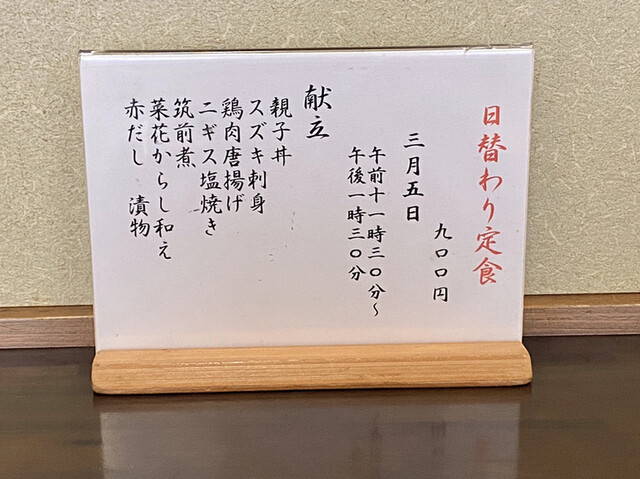 日替わり定食
九〇〇円
三月五日
午前十一時三〇分～
午後一時三〇分
献立
親子丼
スズキ刺身
鶏肉唐揚げ
ニギス塩焼き
筑前煮
菜花からし和え
赤だし 漬物